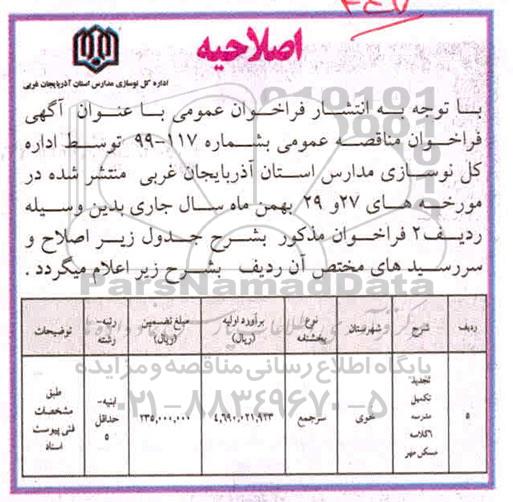 ۲۴۷
اصلاحیه
اداره کل نوسازی مدارس استان آذربایجان غربی
با توجه به انتشار فراخوان عمومی با عنوان آگهی
فراخوان مناقصه عمومی بشماره ۱۱۷-۹۹ توسط اداره
کل نوسازی مدارس استان آذربایجان غربی منتشر شده در
مورخه های ۲۷و ۲۹ بهمن ماه سال جاری بدین وسیله
ردیف۲ فراخوان مذکور بشرح جدول زیر اصلاح و
سررسید های مختص آن ردیف بشرح زیر اعلام میگردد .
ردیف شرح شهرستان نوع بخشنامه برآورد اولیه (ریال) مبلغ تضمین (ریال) رتبه-رشته توضیحات
۵ تجدید- تکمیل مدرسه ۶کلاسه مسکن مهر خوی سرجمع ۴,۶۹۰,۰۲۱,۹۲۳ ۲۳۵,۰۰۰,۰۰۰ ابنیه- حداقل ۵ طبق مشخصات فنی پیوست اسناد
ParsNamadData
پایگاه اطلاع رسانی مناقصه و مزایده
۰۲۱-۸۸۳۴۹۶۷۰-۵